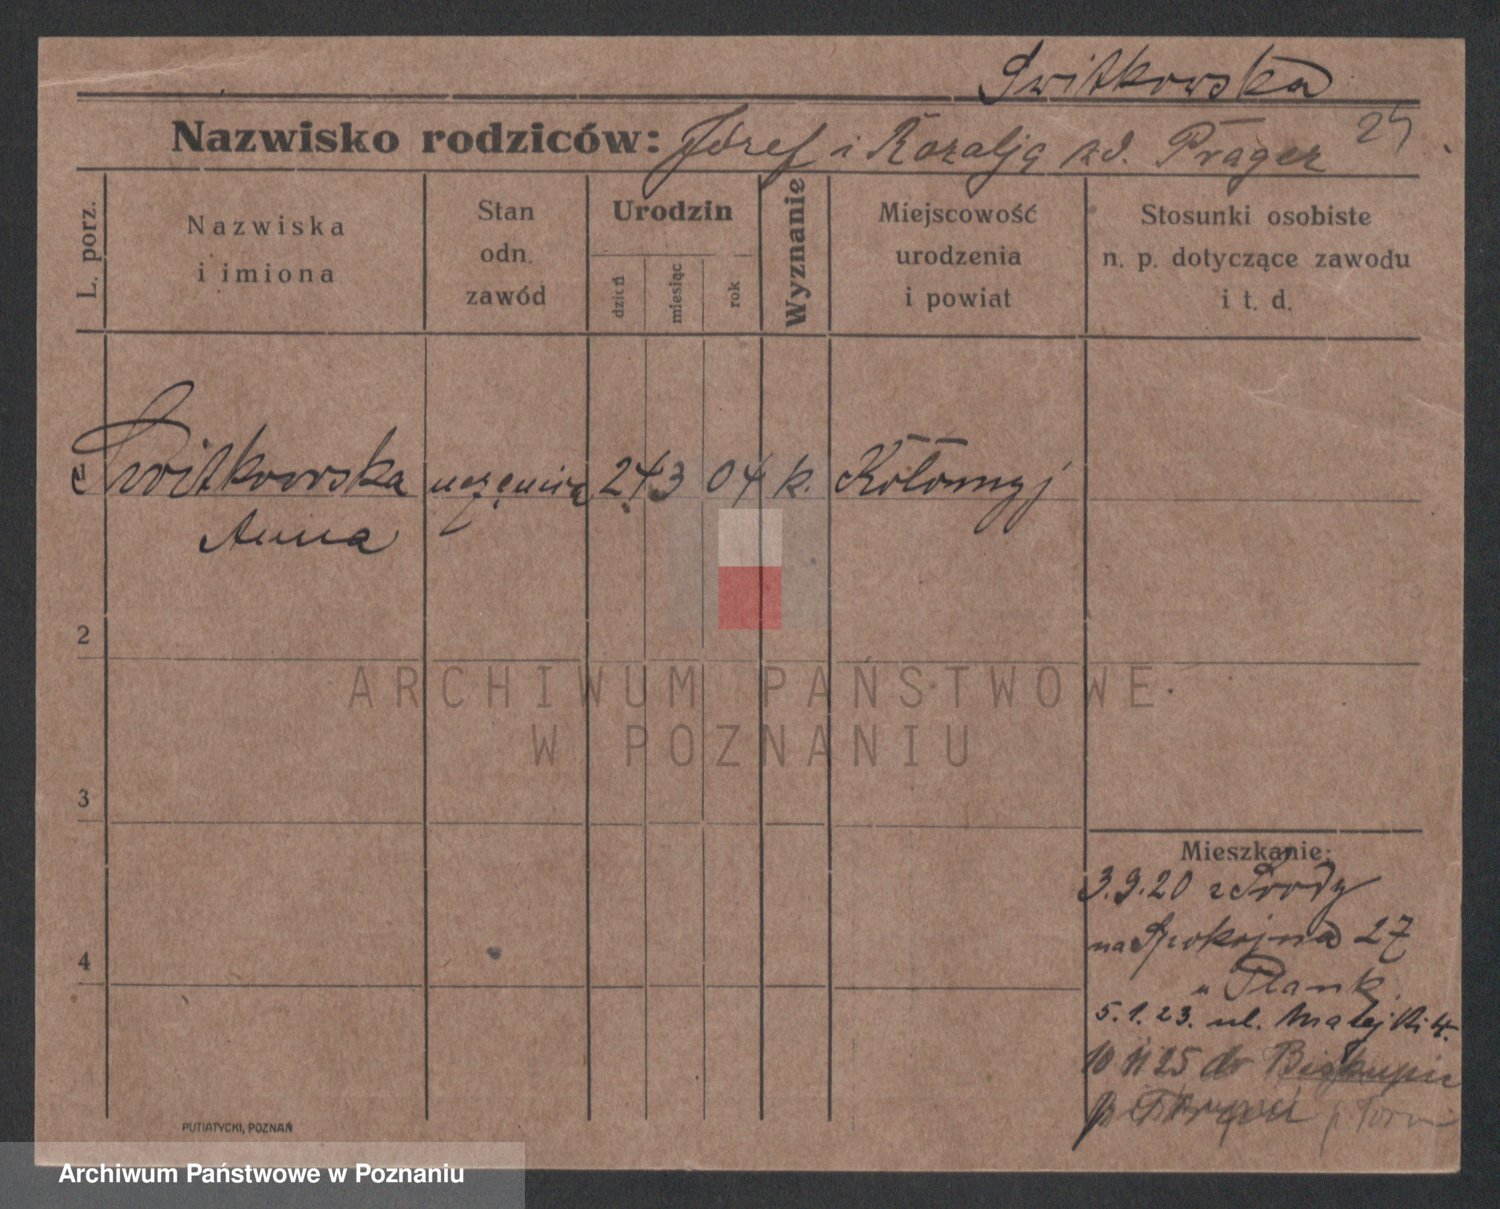 Switkowska
Nazwisko rodziców: Józef i Rozalja zd. Prager
L. porz.
Nazwiska
i imiona
Stan
odn.
zawód
Urodzin
dzień
miesiąc
rok
Wyznanie
Miejscowość
urodzenia
i powiat
Stosunki osobiste
n. p. dotyczące zawodu
i t. d.
Switkowska uczenica 24 3 04 k. Kołomyj
Anna
2
3
4
ARCHIWUM PAŃSTWOWE
W POZNANIU
Mieszkanie:
3.9.20 z Środy
na Spokojna 27
" Plank
5.1.23. ul. Matejki 4.
10 11 25 do Biskupic
PUTIATYCKI, POZNAŃ
Archiwum Państwowe w Poznaniu